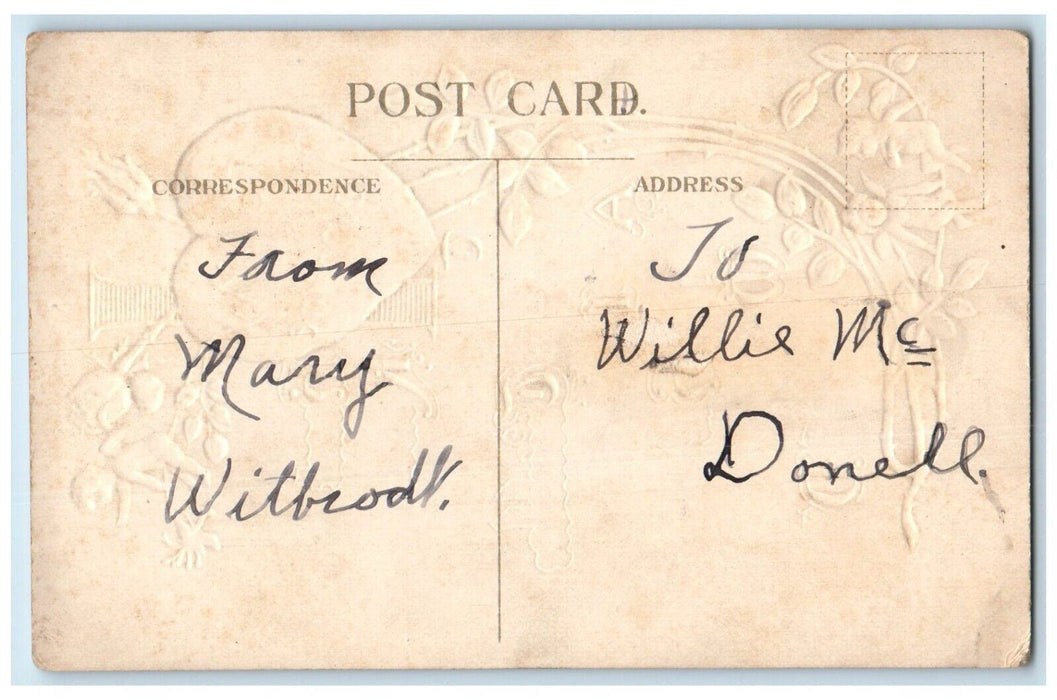 POST CARD.
CORRESPONDENCE
From
Mary
Witbrodt.
ADDRESS
To
Willie Mc
Donell.